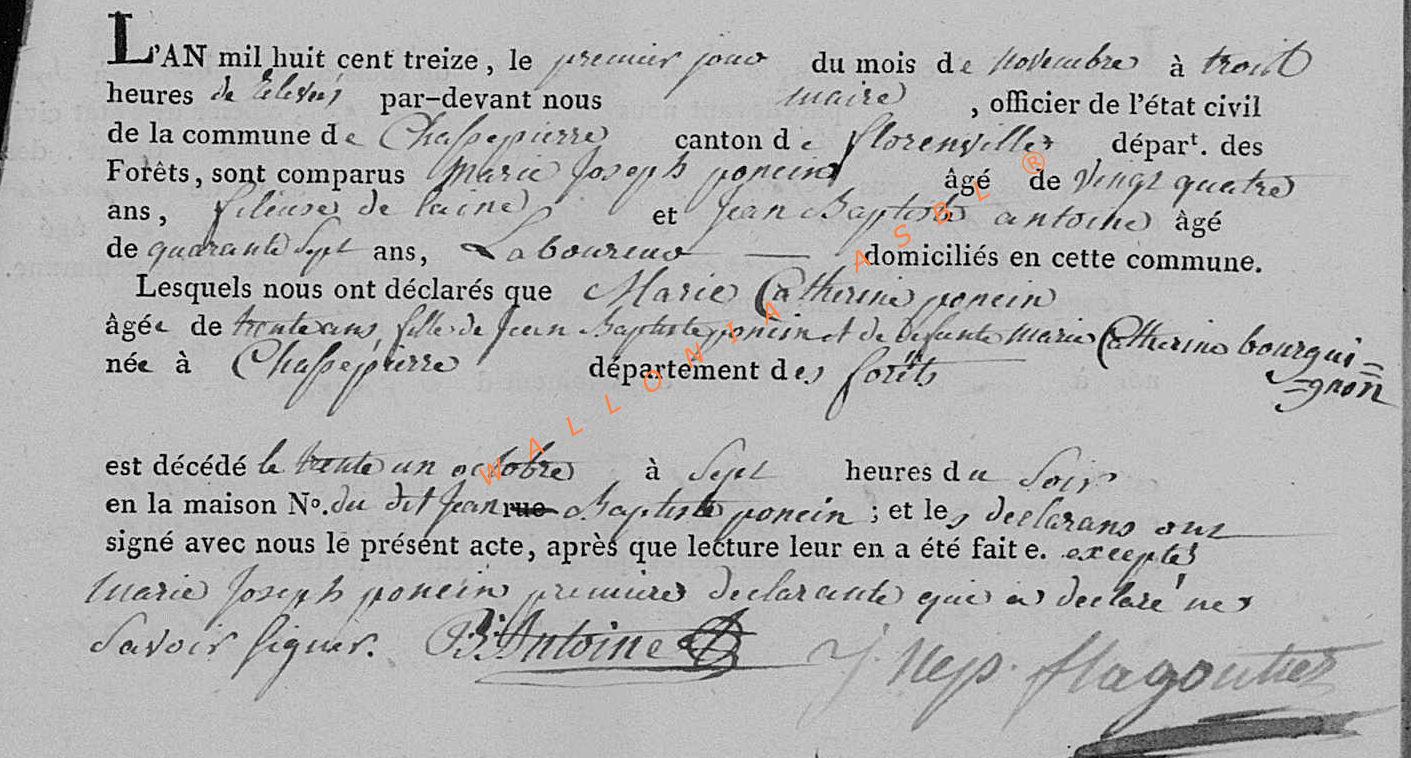 L'AN mil huit cent treize, le premier jour du mois de novembre à trois
heures de relevés par-devant nous maire, officier de l'état civil
de la commune de Chassepierre canton de florenville départ. des
Forêts, sont comparus Marie Joseph poncin âgé de vingt quatre
ans, fileuse de laine et Jean Baptiste antoine âgé
de quarante Sept ans, Laboureur — domiciliés en cette commune.
Lesquels nous ont déclarés que Marie Catherine poncin
âgée de trente ans fille de Jean Baptiste poncin et de Defunte Marie Catherine bourgui=
née à Chassepierre département des forêts =gnon
est décédé le trente un octobre à Sept heures du Soir
en la maison No. du dit Jean rue Baptiste poncin ; et les declarans ont
signé avec nous le présent acte, après que lecture leur en a été faite. exceptes
Marie Joseph poncin premiere declarante qui a declaré ne
Savoir signer. B: Antoine J. Nep. flagoutier
WALLONIA ASBL ®